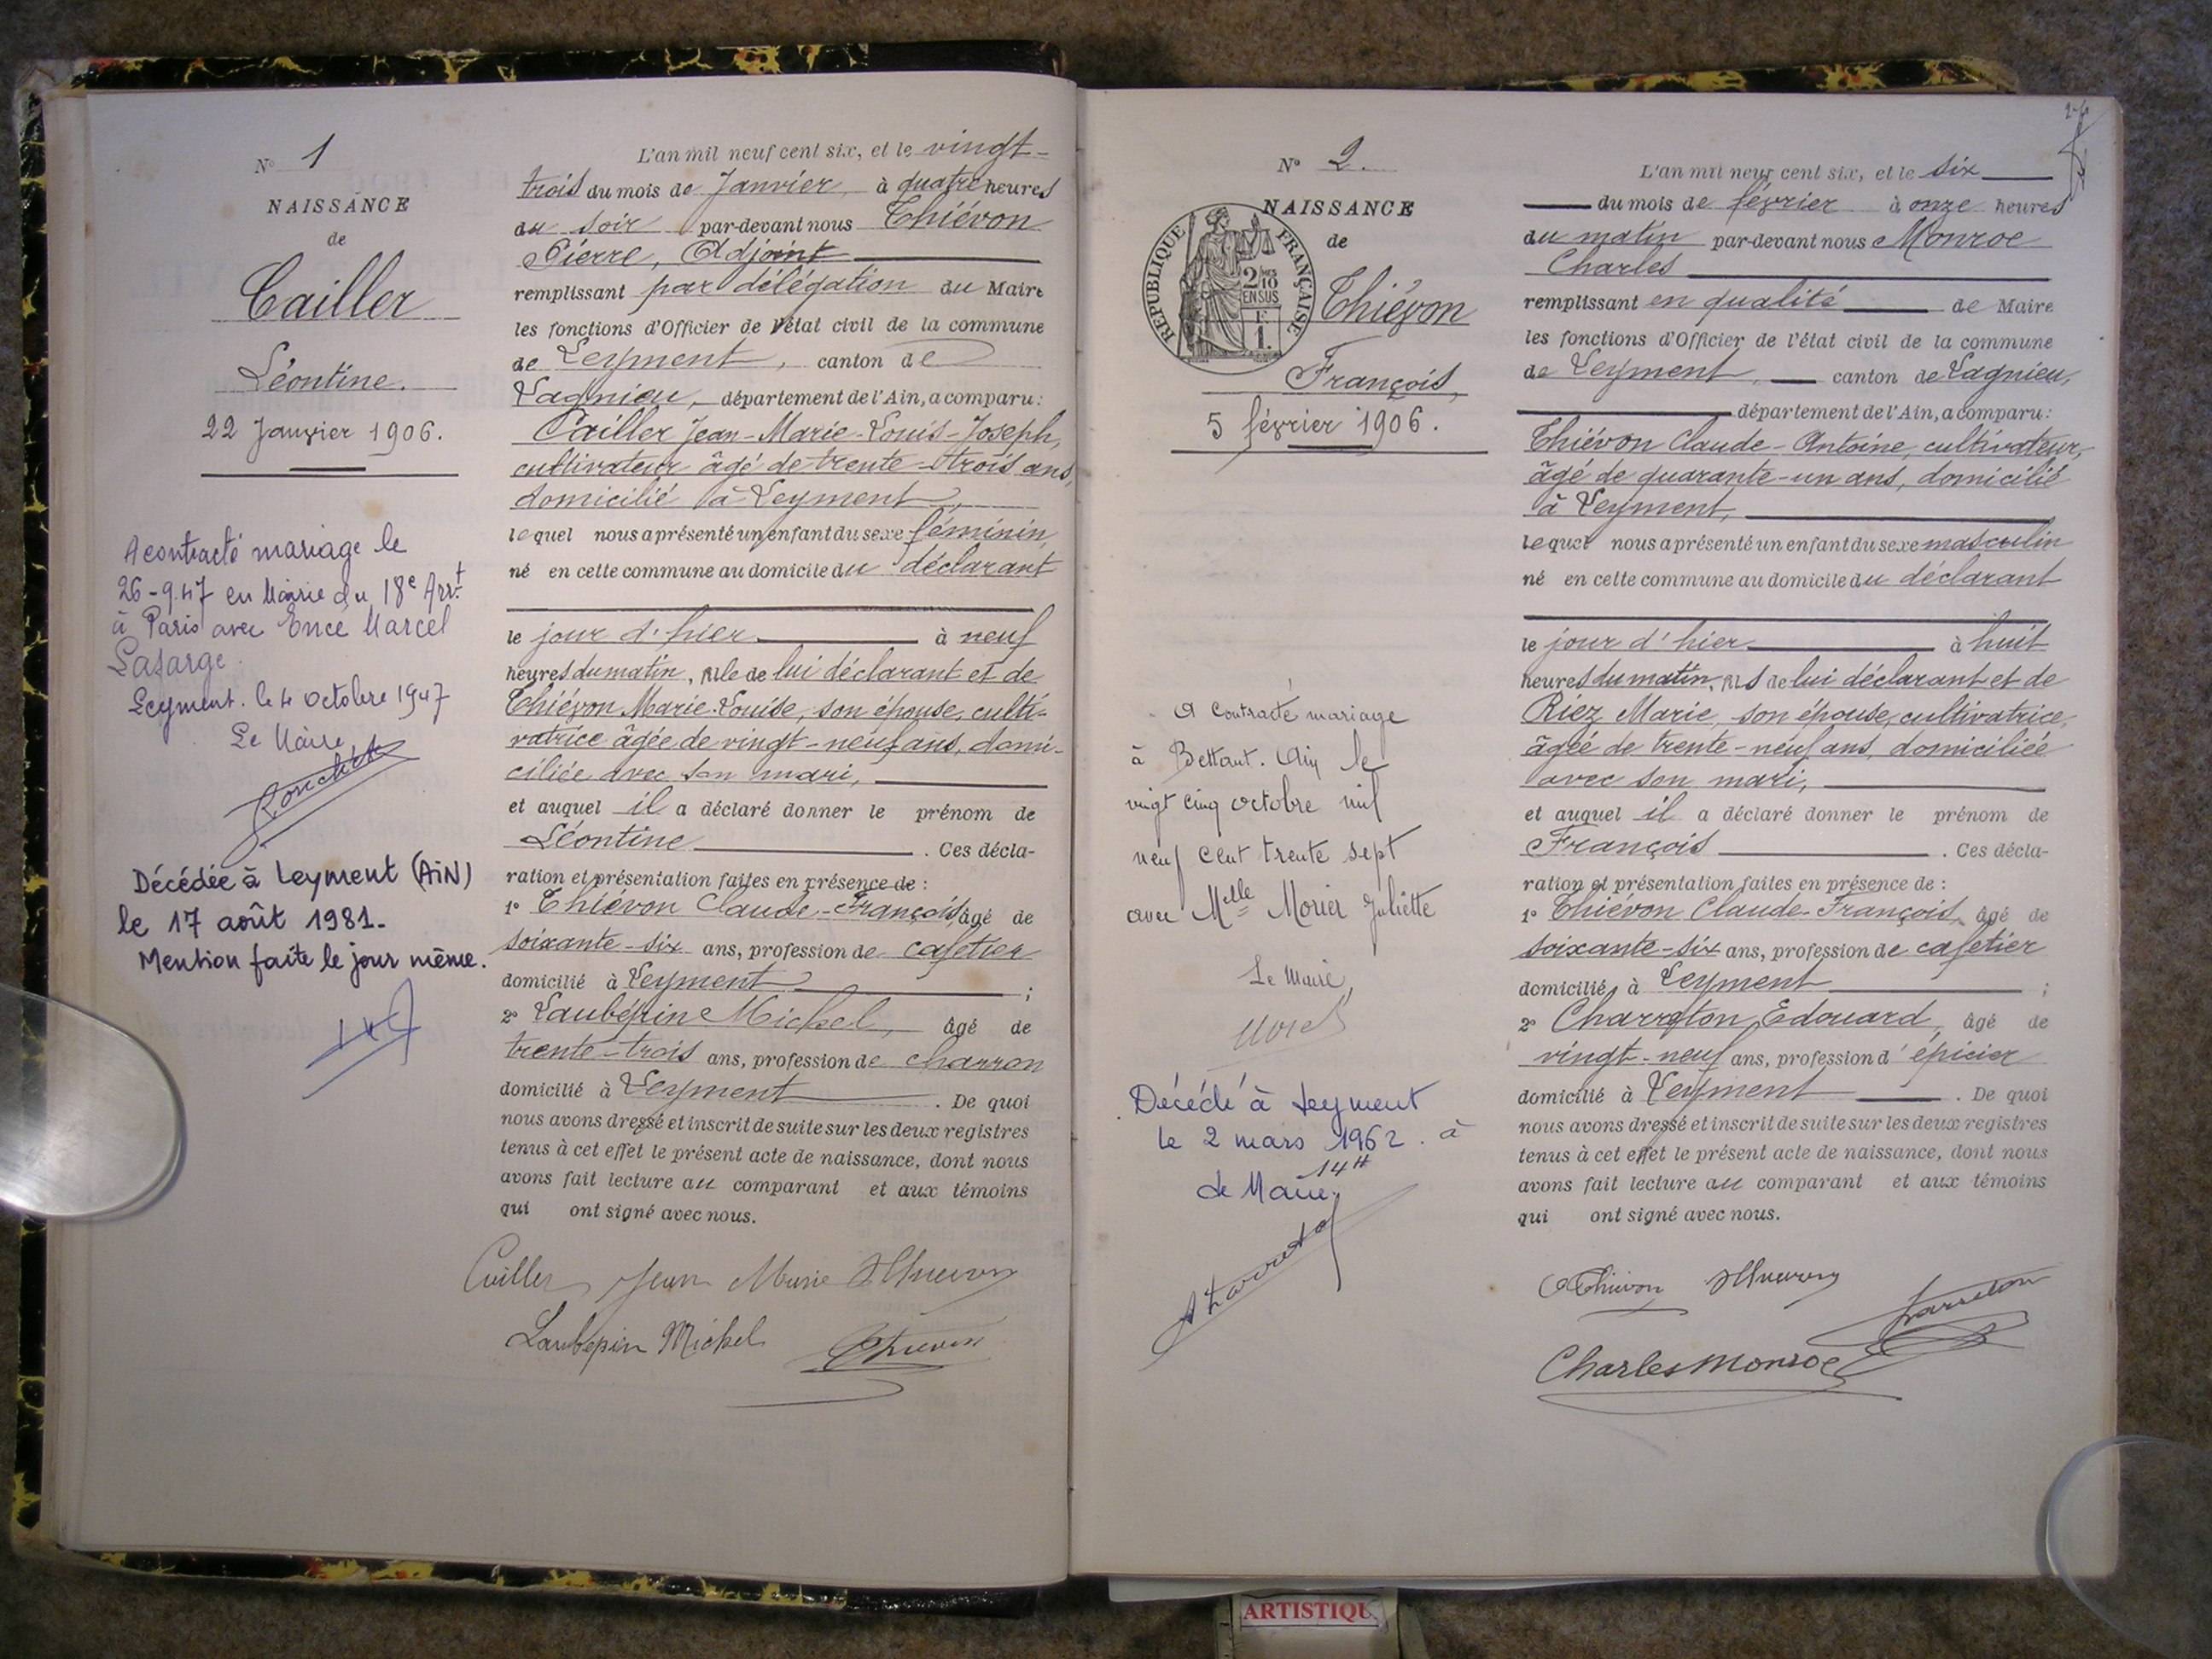 N° 1
NAISSANCE
de
Cailler
Léontine.
22 Janvier 1906.
A contracté mariage le
26-9.47 en Mairie du 18e Arrt
à Paris avec Encé Marcel
Lafarge.
Leyment. le 4 octobre 1947
Le Maire
Décédée à Leyment (AiN)
le 17 août 1981-
Mention faite le jour même.
L'an mil neuf cent six, et le vingt-
trois du mois de Janvier à quatre heures
du soir par-devant nous Thiévon
Pierre, Adjoint
remplissant par délégation du Maire
les fonctions d'Officier de l'état civil de la commune
de Leyment, canton de
Lagnieu, département de l'Ain, a comparu :
Cailler Jean-Marie-Louis-Joseph,
cultivateur âgé de trente-trois ans,
domicilié à Leyment,
lequel nous a présenté un enfant du sexe féminin,
né en cette commune au domicile du déclarant
le jour d'hier à neuf
heures du matin, fille de lui déclarant et de
Thiévon Marie-Louise, son épouse, culti-
vatrice âgée de vingt-neuf ans, domi-
ciliée avec son mari,
et auquel il a déclaré donner le prénom de
Léontine . Ces décla-
ration et présentation faites en présence de :
1° Thiévon Claude-François, âgé de
soixante-six ans, profession de cafetier
domicilié à Leyment ;
2° Laubépin Michel, âgé de
trente-trois ans, profession de charron
domicilié à Leyment . De quoi
nous avons dressé et inscrit de suite sur les deux registres
tenus à cet effet le présent acte de naissance, dont nous
avons fait lecture au comparant et aux témoins
qui ont signé avec nous.
Cailler Jean Marie Thievon
Laubepin Michel Thievon
N° 2.
NAISSANCE
de
RÉPUBLIQUE FRANÇAISE
2/10
EN SUS
F.
1.
Thiévon
François,
5 février 1906.
A contracté mariage
à Bettant. Ain le
vingt cinq octobre mil
neuf cent trente sept
avec Melle Morier Juliette
Le Maire,
Morel
Décédé à Leyment
le 2 mars 1962. à
14H
Le Maire.
L'an mil neuf cent six, et le six
du mois de février à onze heures
du matin par-devant nous Monroe
Charles
remplissant en qualité de Maire
les fonctions d'Officier de l'état civil de la commune
de Leyment, canton de Lagnieu,
département de l'Ain, a comparu :
Thiévon Claude-Antoine, cultivateur,
âgé de quarante-un ans, domicilié
à Leyment,
lequel nous a présenté un enfant du sexe masculin
né en cette commune au domicile du déclarant
le jour d'hier à huit
heures du matin, fils de lui déclarant et de
Riez Marie, son épouse, cultivatrice,
âgée de trente-neuf ans, domiciliée
avec son mari,
et auquel il a déclaré donner le prénom de
François . Ces décla-
ration et présentation faites en présence de :
1° Thiévon Claude-François, âgé de
soixante-six ans, profession de cafetier
domicilié à Leyment ;
2° Charreton Edouard, âgé de
vingt-neuf ans, profession d'épicier
domicilié à Leyment . De quoi
nous avons dressé et inscrit de suite sur les deux registres
tenus à cet effet le présent acte de naissance, dont nous
avons fait lecture au comparant et aux témoins
qui ont signé avec nous.
Thievon Thievon
Charreton
Charles Monroe
ARTISTIQU